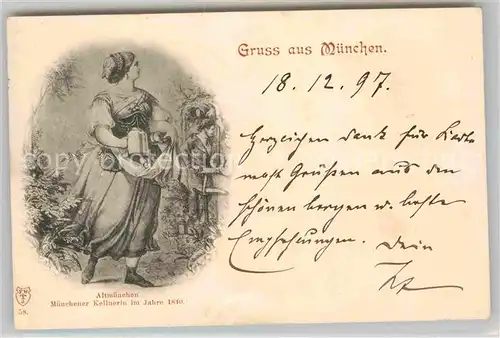 Gruss aus München.
18. 12. 97.
Herzlichen Dank für Karte
nebst Grüßen aus den
schönen bergen u. beste
Empfehlungen. Dein
Altmünchen
Münchener Kellnerin im Jahre 1840.
58.